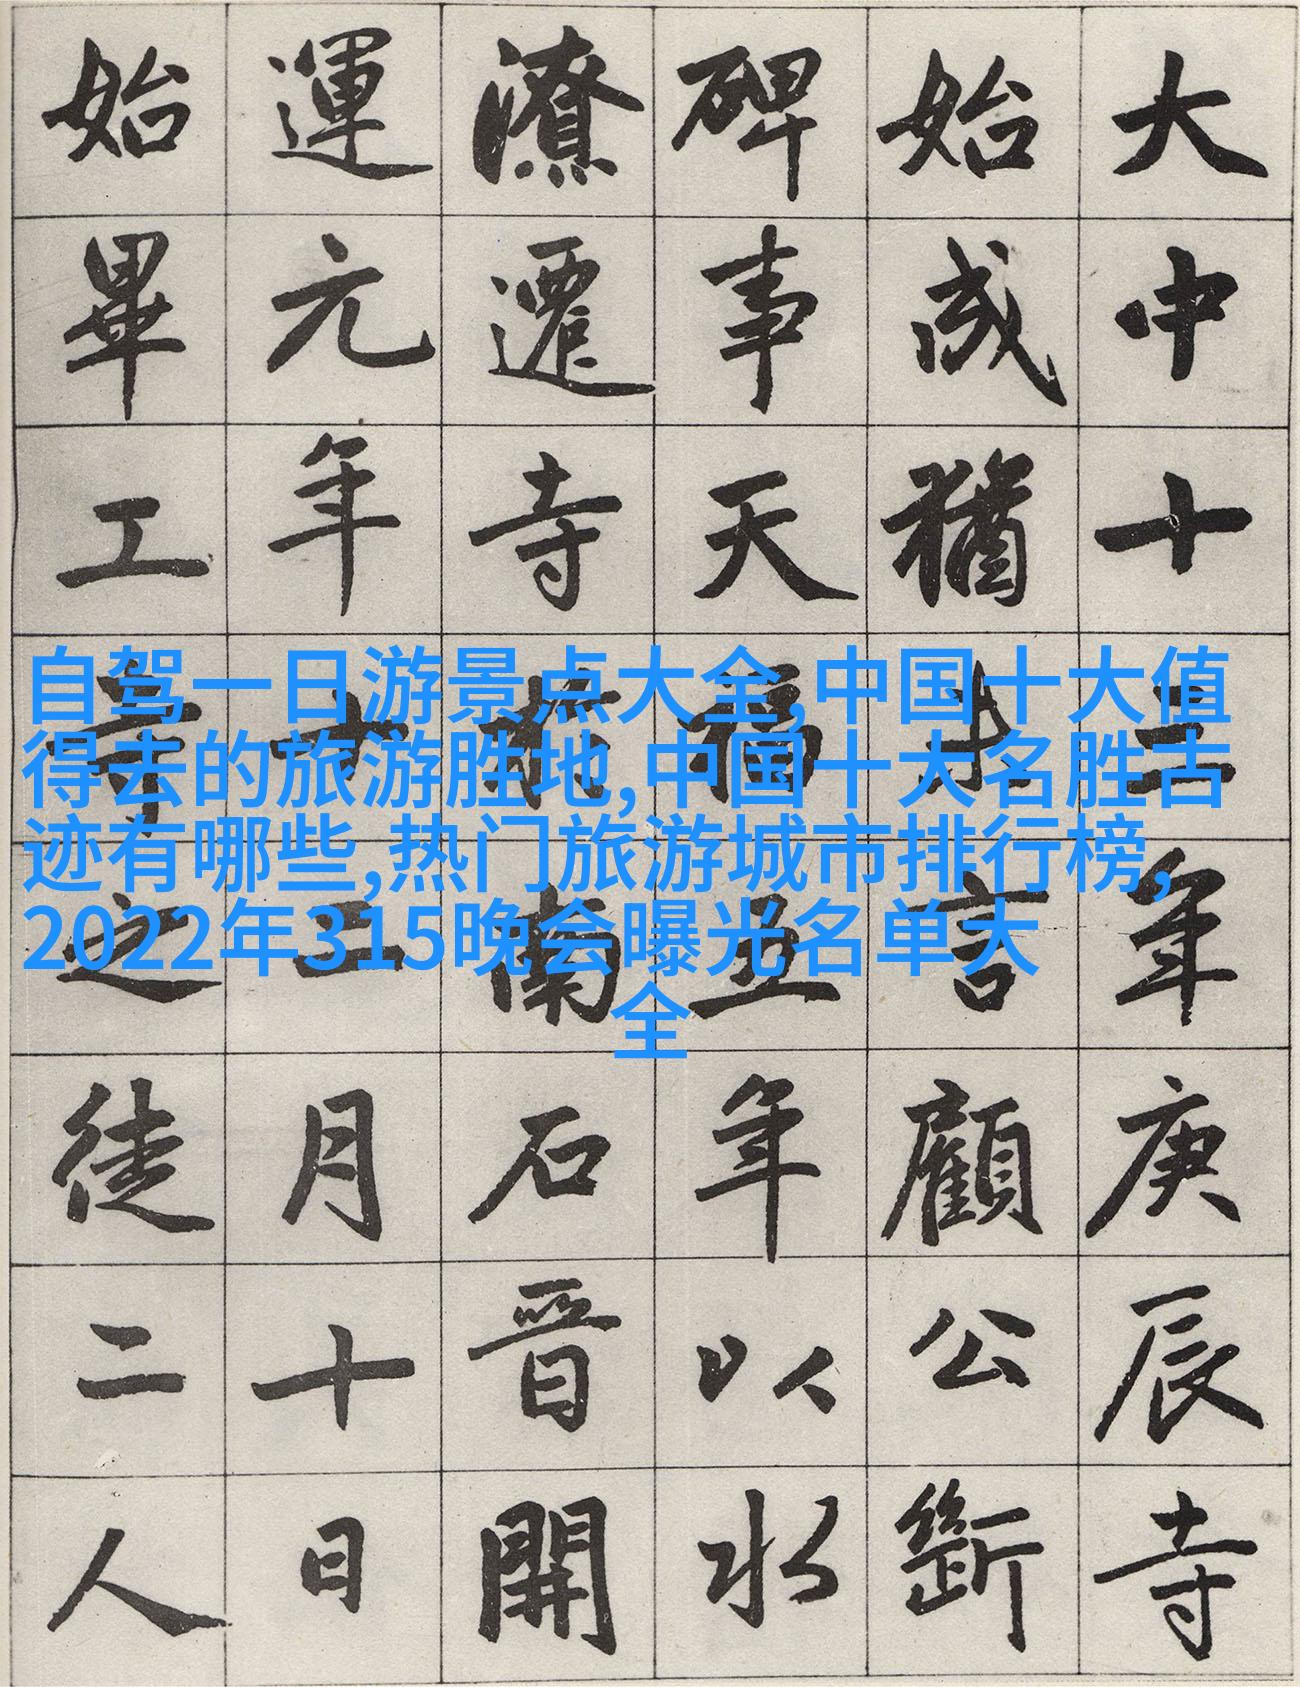 自驾一日游景点大全,中国十大值
得去的旅游胜地,中国十大名胜古
迹有哪些,热门旅游城市排行榜,
2022年315晚会曝光名单大
全
大中十三年庚辰寺
始成猶言顧公
碑事天福五年以水
潦遷寺於南石晉開
運元年十二月十日
始畢工寺之徒二人